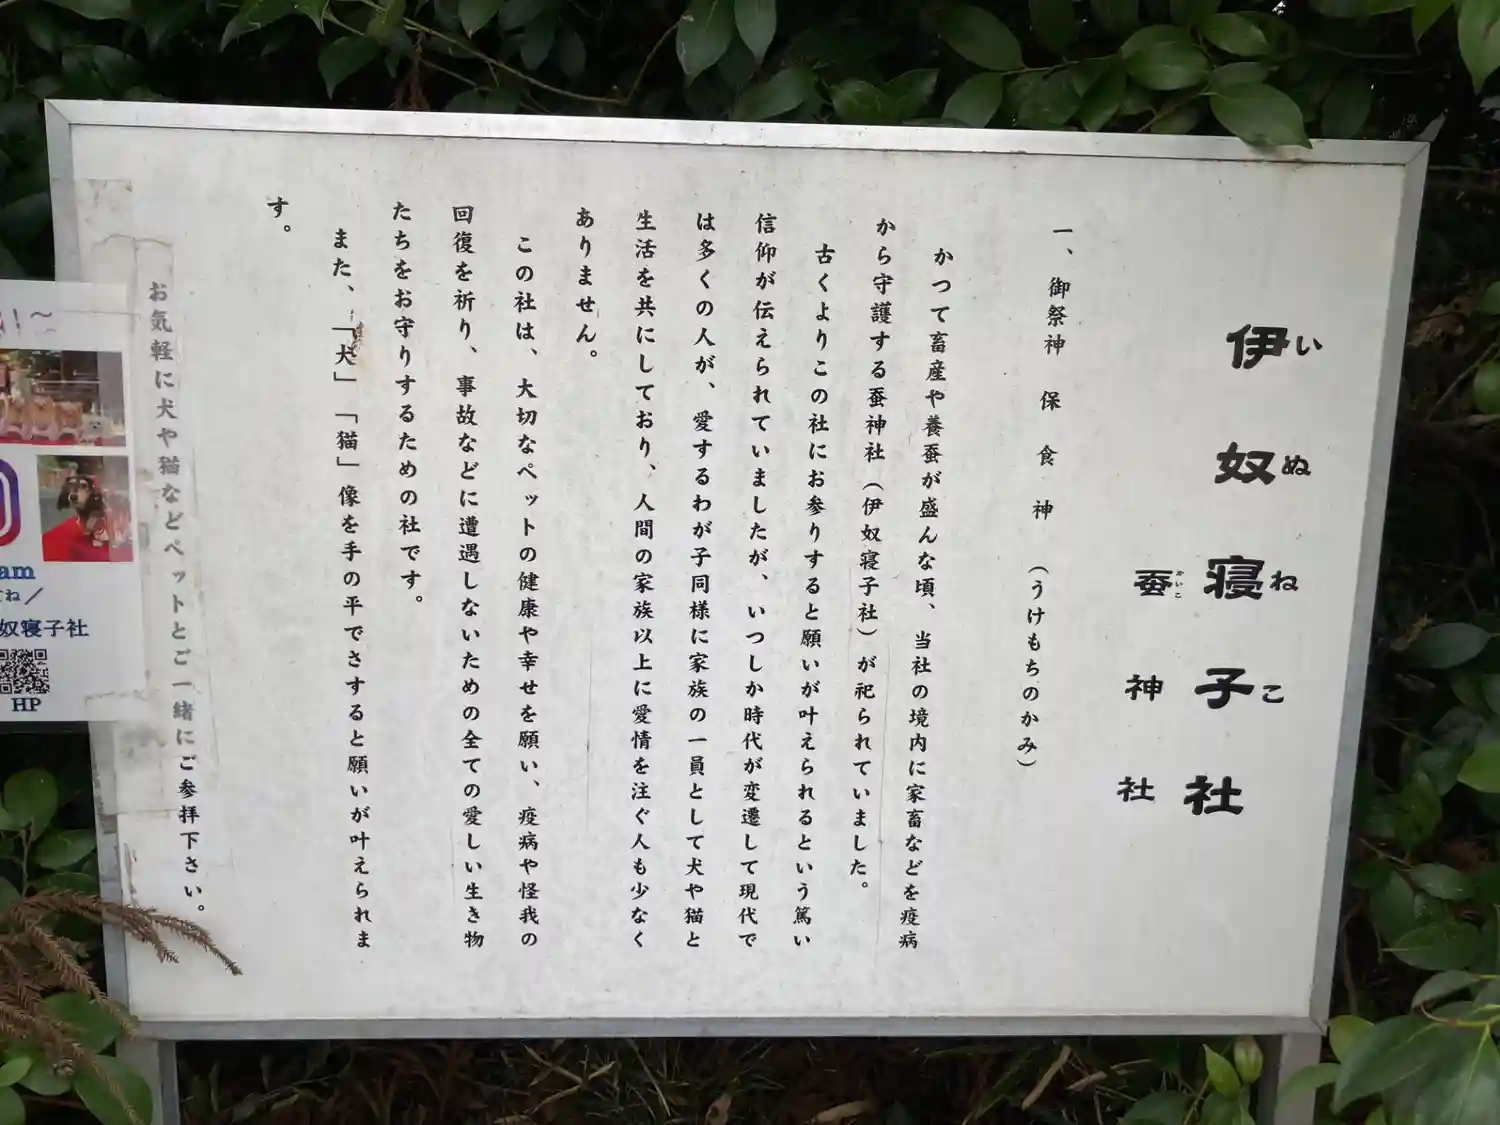 伊奴寝子社
いぬねこ
蚕神社
かいこ
一、御祭神　保食神　（うけもちのかみ）
かつて畜産や養蚕が盛んな頃、当社の境内に家畜などを疫病
から守護する蚕神社（伊奴寝子社）が祀られていました。
古くよりこの社にお参りすると願いが叶えられるという篤い
信仰が伝えられていましたが、いつしか時代が変遷して現代で
は多くの人が、愛するわが子同様に家族の一員として犬や猫と
生活を共にしており、人間の家族以上に愛情を注ぐ人も少なく
ありません。
この社は、大切なペットの健康や幸せを願い、疫病や怪我の
回復を祈り、事故などに遭遇しないための全ての愛しい生き物
たちをお守りするための社です。
また、「犬」「猫」像を手の平でさすると願いが叶えられま
す。
お気軽に犬や猫などペットとご一緒にご参拝下さい。
！～
am
ね／
奴寝子社
HP